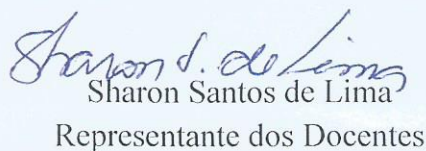 Sharon S. de Lima
Sharon Santos de Lima
Representante dos Docentes